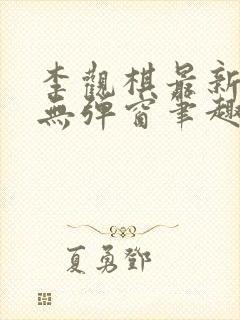 李觀棋最新
無彈窗筆趣
夏勇鄧